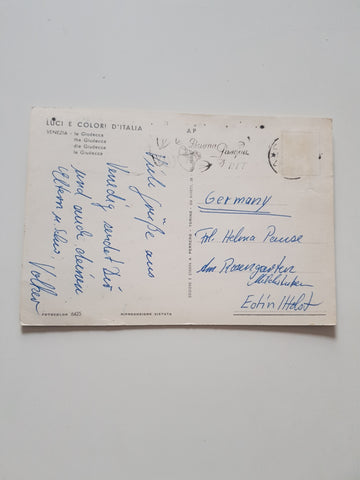 LUCI E COLORI D'ITALIA
VENEZIA - la Giudecca
the Giudecca
die Giudecca
la Giudecca
Viele Grüße aus
Venedig sendet Dir
und auch deinen
Eltern
Volker
FOTOCOLOR 6425
RIPRODUZIONE VIETATA
A P
Buona
Pasqua
Germany
Frl. Helma Pause
Am Rosengarten
Eutin / Holst